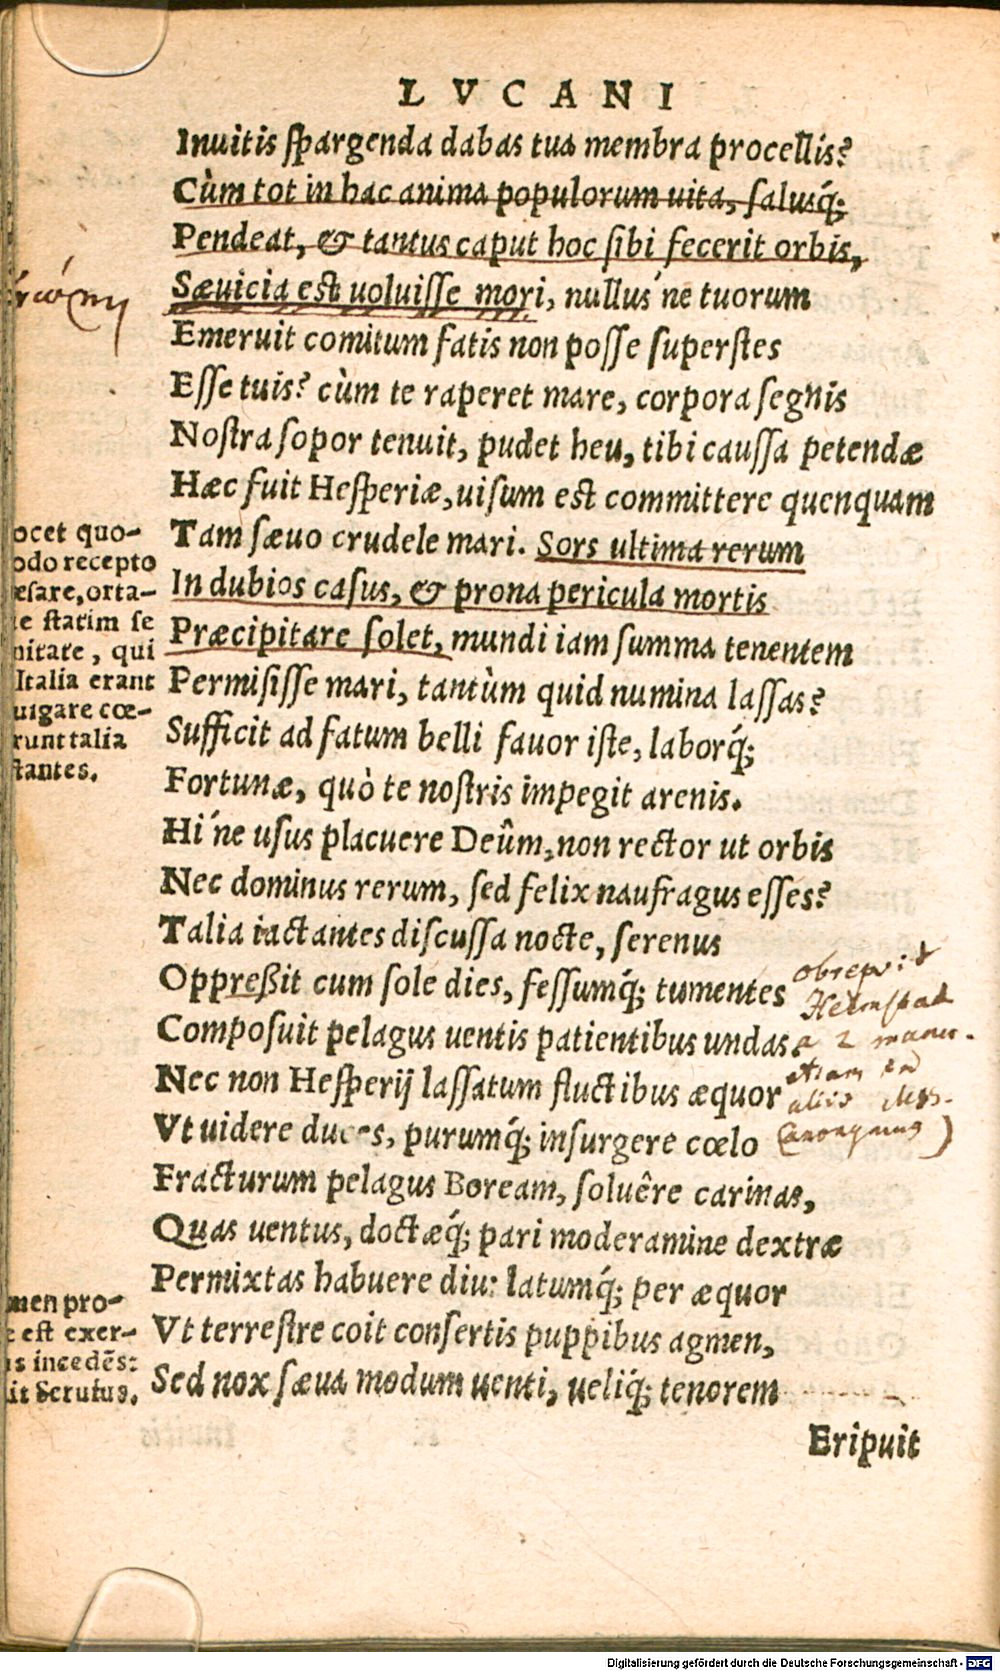 LVCANI
Inuitis spargenda dabas tua membra procellis?
Cùm tot in hac anima populorum uita, salusq́;
Pendeat, & tantus caput hoc sibi fecerit orbis,
Sæuicia est uoluisse mori, nullus ́ne tuorum
Emeruit comitum fatis non posse superstes
Esse tuis? cùm te raperet mare, corpora segnis
Nostra sopor tenuit, pudet heu, tibi caussa petendæ
Hæc fuit Hesperiæ, uisum est committere quenquam
Tam sæuo crudele mari. Sors ultima rerum
In dubios casus, & prona pericula mortis
Præcipitare solet, mundi iam summa tenentem
Permisisse mari, tantùm quid numina lassas?
Sufficit ad fatum belli fauor iste, laborq́;
Fortunæ, quò te nostris impegit arenis.
Hi ́ne usus placuere Deûm, non rector ut orbis
Nec dominus rerum, sed felix naufragus esses?
Talia iactantes discussa nocte, serenus
Oppreßit cum sole dies, fessumq́; tumentes
Composuit pelagus uentis patientibus undas.
Nec non Hesperij lassatum fluctibus æquor
Vt uidere duces, purumq́; insurgere cœlo
Fracturum pelagus Boream, soluêre carinas,
Quas uentus, doctæq́; pari moderamine dextræ
Permixtas habuere diu: latumq́; per æquor
Vt terrestre coit consertis puppibus agmen,
Sed nox sæua modum uenti, ueliq́; tenorem
Eripuit
ocet quo-
odo recepto
esare, orta-
e statim se
nitate, qui
Italia erant
uigare cœ-
runt talia
stantes.
men pro-
e est exer-
is incedēs:
it Seruius.
obrepsit
a 2 manu.
etiam in
aliis Mss.